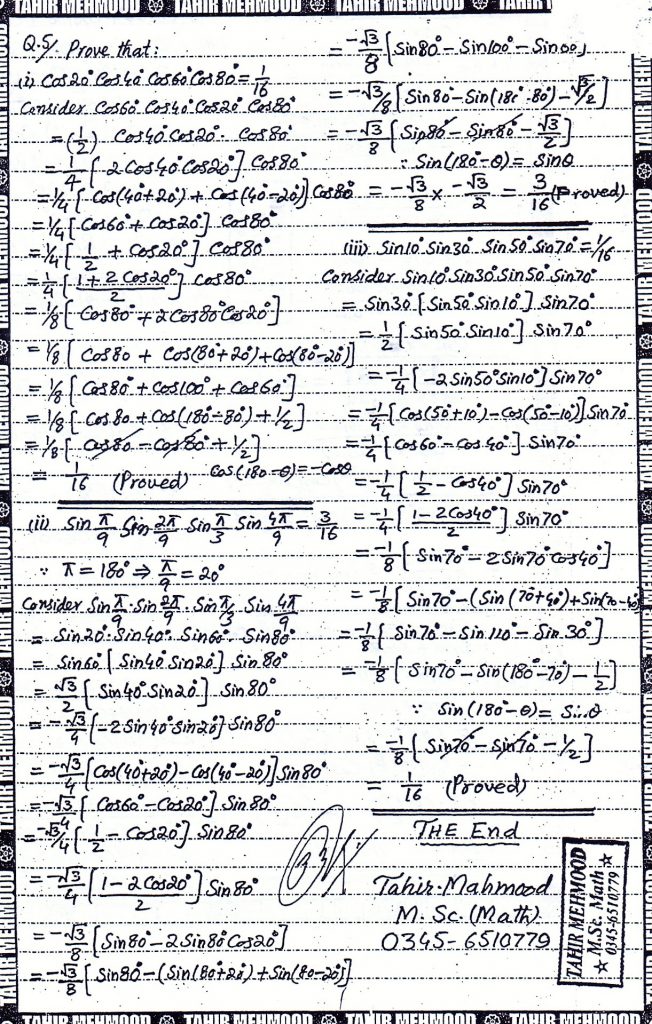 TAHIR MEHMOOD TAHIR MEHMOOD TAHIR MEHMOOD
Q.5/. Prove that:
(i) Cos20° Cos40° Cos60° Cos80° = 1/16
Consider Cos60° Cos40° Cos20° Cos80°
= (1/2) Cos40° Cos20° · Cos80°
= 1/4 [2Cos40° Cos20°] Cos80°
= 1/4 [Cos(40°+20°) + Cos(40°-20°)] Cos80°
= 1/4 [Cos60° + Cos20°] Cos80°
= 1/4 [1/2 + Cos20°] Cos80°
= 1/4 [(1+2Cos20°)/2] Cos80°
= 1/8 [Cos80° + 2Cos80° Cos20°]
= 1/8 [Cos80 + Cos(80°+20°) + Cos(80°-20°)]
= 1/8 [Cos80° + Cos100° + Cos60°]
= 1/8 [Cos80 + Cos(180°-80°) + 1/2]
= 1/8 [Cos80 - Cos80° + 1/2]
= 1/16 (Proved) Cos(180-θ) = -Cosθ
(ii) Sin π/9 Sin 2π/9 Sin π/3 Sin 4π/9 = 3/16
∵ π = 180° ⇒ π/9 = 20°
Consider Sin π/9 · Sin 2π/9 · Sin π/3 Sin 4π/9
= Sin20° · Sin40° · Sin60° · Sin80°
= Sin60° [Sin40° Sin20°] · Sin80°
= √3/2 [Sin40° Sin20°] · Sin80°
= -√3/4 [-2Sin40° Sin20°] Sin80°
= -√3/4 [Cos(40°+20°) - Cos(40°-20°)] Sin80°
= -√3/4 [Cos60° - Cos20°] Sin80°
= -√3/4 [1/2 - Cos20°] Sin80°
= -√3/4 [(1-2Cos20°)/2] Sin80°
= -√3/8 [Sin80° - 2Sin80° Cos20°]
= -√3/8 [Sin80° - (Sin(80°+20°) + Sin(80-20°)]
= -√3/8 [Sin80° - Sin100° - Sin60°]
= -√3/8 [Sin80 - Sin(180°-80°) - √3/2]
= -√3/8 [Sin80° - Sin80° - √3/2]
∵ Sin(180°-θ) = Sinθ
= -√3/8 × -√3/2 = 3/16 (Proved)
(iii) Sin10° Sin30° Sin50° Sin70° = 1/16
Consider Sin10° Sin30° Sin50° Sin70°
= Sin30° [Sin50° Sin10°] Sin70°
= 1/2 [Sin50° Sin10°] Sin70°
= -1/4 [-2Sin50° Sin10°] Sin70°
= -1/4 [Cos(50°+10°) - Cos(50°-10°)] Sin70°
= -1/4 [Cos60° - Cos40°] Sin70°
= -1/4 [1/2 - Cos40°] Sin70°
= -1/4 [(1-2Cos40°)/2] Sin70°
= -1/8 [Sin70° - 2Sin70° Cos40°]
= -1/8 [Sin70° - (Sin(70°+40°) + Sin(70-40°)
= -1/8 [Sin70° - Sin110° - Sin30°]
= -1/8 [Sin70° - Sin(180°-70°) - 1/2]
∵ Sin(180°-θ) = Sinθ
= -1/8 [Sin70° - Sin70° - 1/2]
= 1/16 (Proved)
THE End
Tahir Mahmood
M. Sc. (Math)
0345-6510779
TAHIR MEHMOOD
M.Sc. Math
0345-6510779
TAHIR MEHMOOD TAHIR MEHMOOD TAHIR MEHMOOD